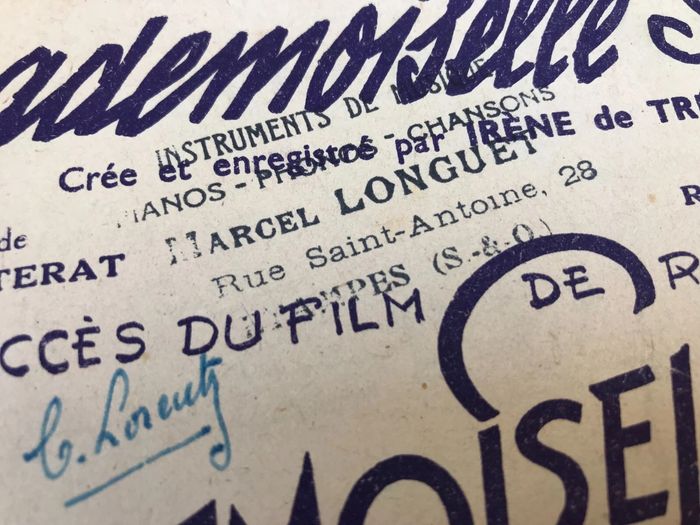 ademoiselle S
INSTRUMENTS DE MUSIQUE
Crée et enregistré par IRÈNE de TRÉ
PIANOS - PHONOS - CHANSONS
MARCEL LONGUET
de
TERAT
Rue Saint-Antoine, 28
R
ÉTAMPES (S.-&-O.)
CCÈS DU FILM DE R
C. Lorentz
EMOISEL